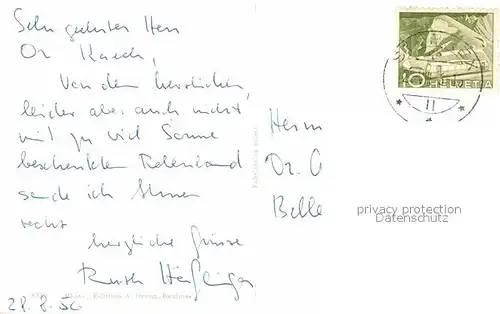 Sehr geehrter Herr
Dr. Kaech,
Von dem herrlichen,
leider aber auch nicht
mit zu viel Sonne
beschenkten Ferienland
sende ich Ihnen
recht
herzliche Grüsse
Ruth
28.8.56
Herrn
Dr.
Belle
10 HELVETIA
II
privacy protection
Datenschutz